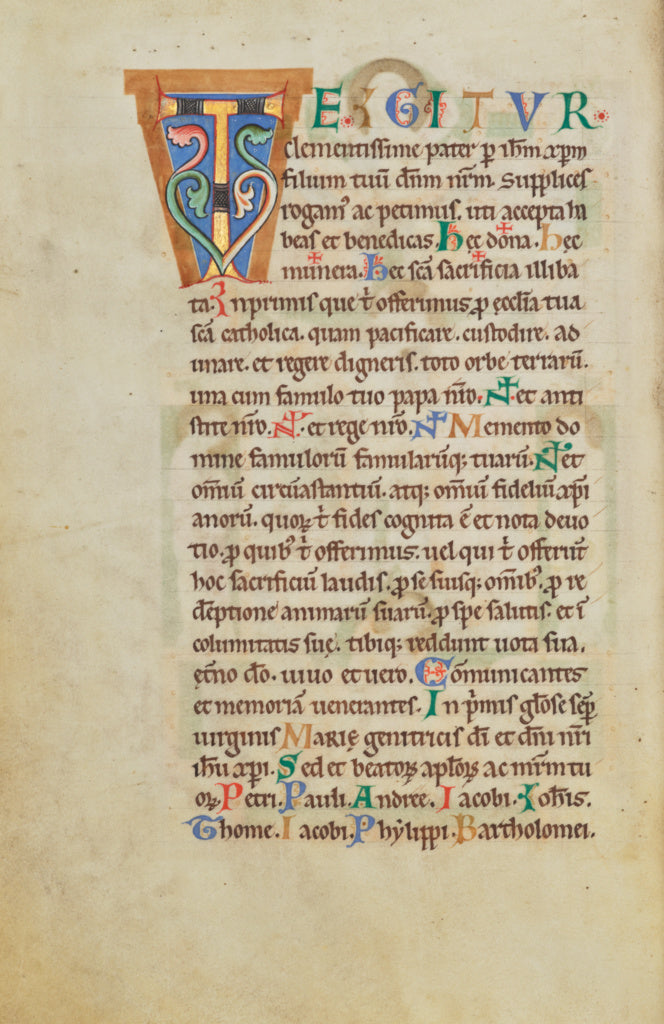 TE IGITVR
clementissime pater p ihm xpm
filium tuū dnm nrm. supplices
rogam᷒ ac petimus. uti accepta ha
beas et benedicas. hec dona. hec
munera. hec scā sacrificia illiba
ta. Inprimis que t̄ offerimus ꝓ ęcclia tua
scā catholica. quam pacificare. custodire. ad
unare. et regere digneris. toto orbe terrarū.
una cum famulo tuo papa nr̄o. N. et anti
stite nr̄o. N. et rege nr̄o. N Memento do
mine famulorū famularūq; tuarū. N et
omniū circūastantiū. atq; omniū fideliū xp̄i
anorū. quoꝝ t̄ fides cognita ē et nota deuo
tio. ꝓ quib᷒ t̄ offerimus. uel qui t̄ offerūt
hoc sacrificiū laudis. ꝓ se suisq; omīb᷒. ꝓ re
dēptione animarū suarū. ꝓ spe salutis. et ī
columitatis suę. tibiq; reddunt uota sua.
ęt̄no dō. uiuo et uero. Cōmunicantes
et memoriā uenerantes. In p̄mis glōse semp̄
uirginis Marię genitricis dī et dnī nr̄i
ihū xp̄i. Sed et beatoꝝ aplōꝝ ac mr̄m tu
oꝝ. Petri. Pauli. Andree. Iacobi. Iohīs.
Thome. Iacobi. Phylippi. Bartholomei.